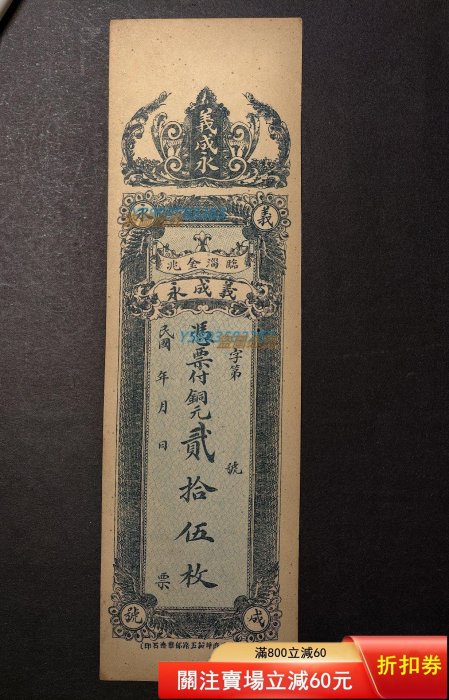 義成永
義
永
號
成
兆全淄臨
永成義
字第 號
憑票付銅元貳拾伍枚
民國 年 月 日
票
滿800立減60
關注賣場立減60元
折扣券